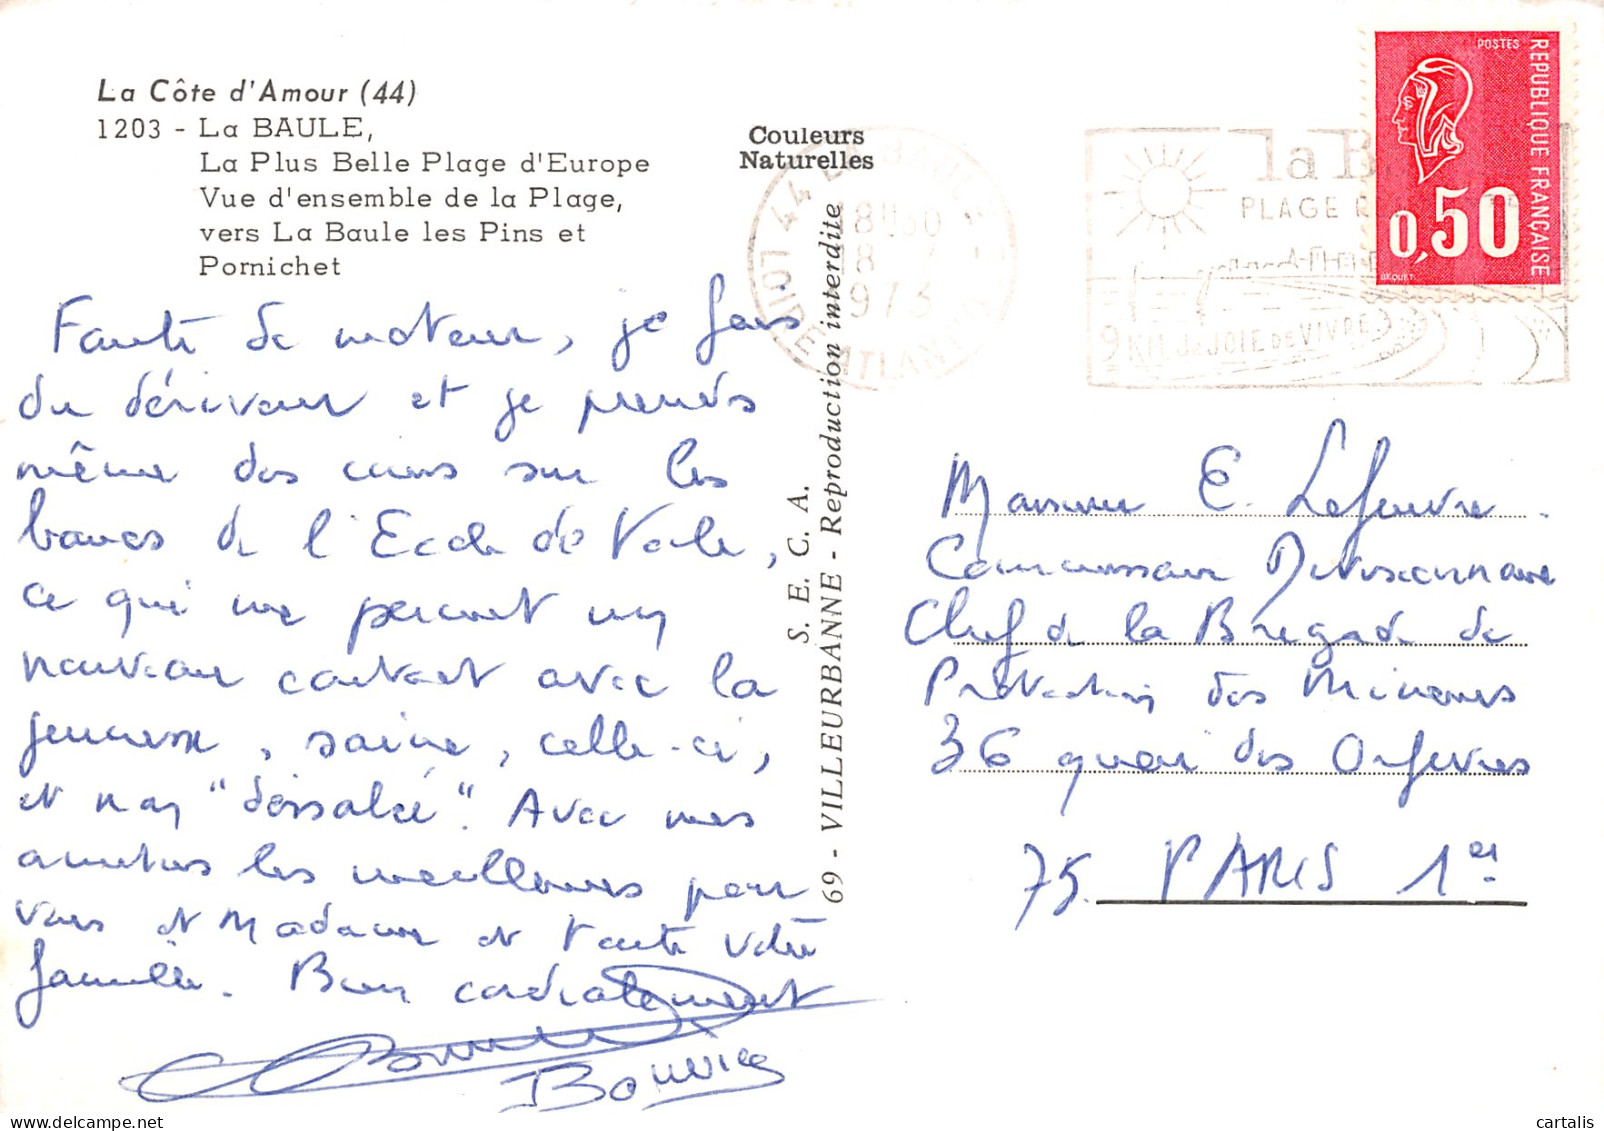 La Côte d'Amour (44)
1203 - La BAULE,
La Plus Belle Plage d'Europe
Vue d'ensemble de la Plage,
vers La Baule les Pins et
Pornichet
Couleurs
Naturelles
Faute de moteur, je fais
du dériveur et je prends
même des cours sur les
bancs de l'Ecole de Voile,
ce qui me permet un
nouveau contact avec la
jeunesse, saine, celle-ci,
et non "dessalée". Avec mes
amitiés les meilleures pour
vous et Madame et toute votre
famille. Bien cordialement
S. E. C. A.
69 - VILLEURBANNE - Reproduction interdite
44 LA BAULE
LOIRE ATLANTIQUE
18H30
18 - 7
1973
la B
PLAGE
9 KM de JOIE DE VIVRE
POSTES
REPUBLIQUE FRANÇAISE
0,50
BEQUET
Monsieur E. Lefeuvre.
Commissaire Divisionnaire
Chef de la Brigade de
Protection des Mineurs
36 quai des Orfèvres
75. PARIS 1er
cartalis